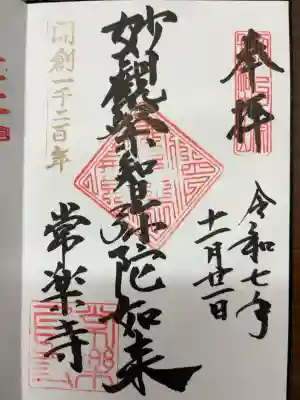 奉拝
令和七年
十一月廿一日
妙観察智弥陀如来
開創一千二百年
常楽寺